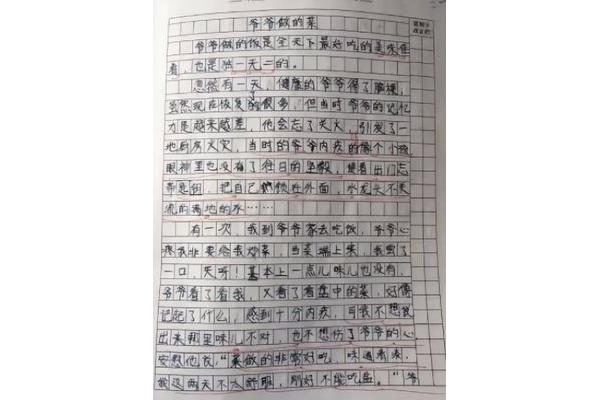 爷爷做的菜
爷爷做的饭是全天下最好吃的美味佳
肴,也是独一无二的。
忽然有一天,健康的爷爷得了脑梗,
虽然现在恢复的很多,但当时爷爷的记忆
力是越来越差,他会忘了关火,引发了一
地厨房火灾,当时的爷爷内疚的像个小孩
眼神里也没有了往日的坚毅,接着出门忘
带钥匙,把自己锁在外面,水龙头不关
流的满地的水……
有一次,我到爷爷家去吃饭,爷爷心
疼我非要给我炒菜,当菜端上来,我尝了
一口,天呀!基本上一点儿味儿也没有,
爷爷看了看我,又看了看盘中的菜,好像
记起了什么,感到十分内疚,可我不想说
出来哪里味儿不对,也不想伤了爷爷的心
安慰他说,“菜做的非常好吃,味道着凑,
我这两天不太舒服,刚好不能吃盐。”爷